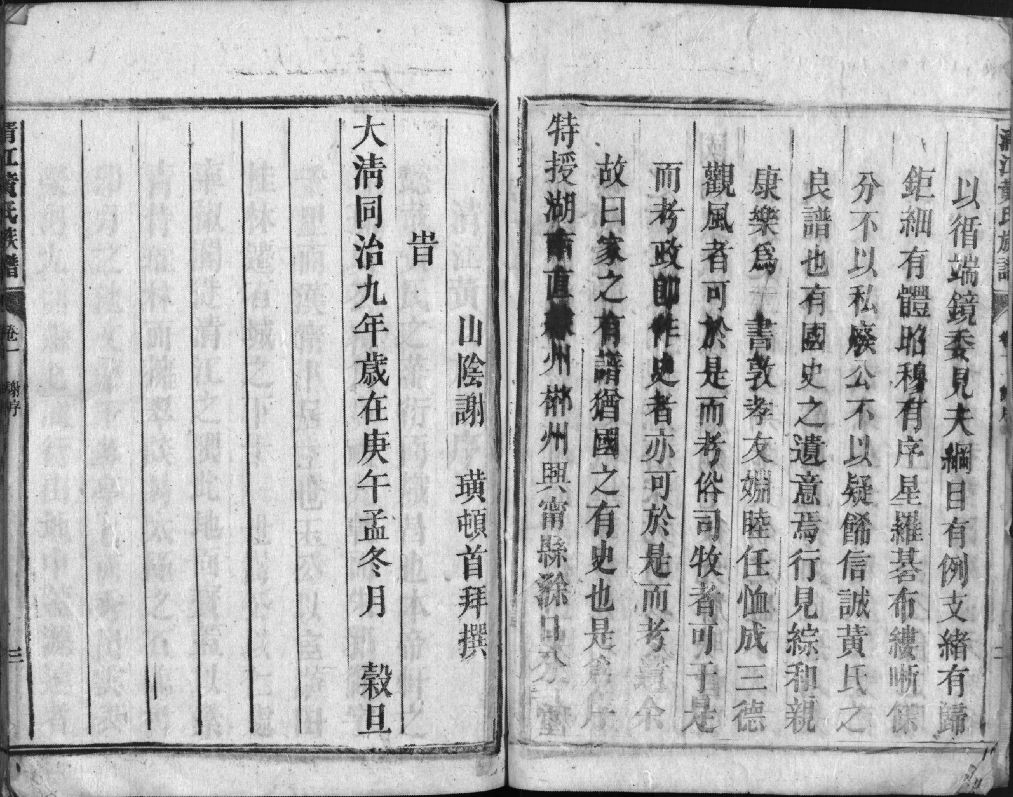 以循端鏡委見夫綱目有例支緒有歸
鉅細有體昭穆有序星羅碁布縷晰條
分不以私廢公不以疑餙信誠黃氏之
良譜也有國史之遺意焉行見綜和親
康樂為 書敦孝友婣睦任恤成三德
觀風者可於是而考俗司牧者可于是
而考政卽作史者亦可於是而考
故曰家之有譜猶國之有史也是為
特授湖南直隸州郴州興甯縣
山陰謝 璜頓首拜撰
旹
大清同治九年歲在庚午孟冬月 榖旦
清江黃氏族譜 卷一 謝序 三